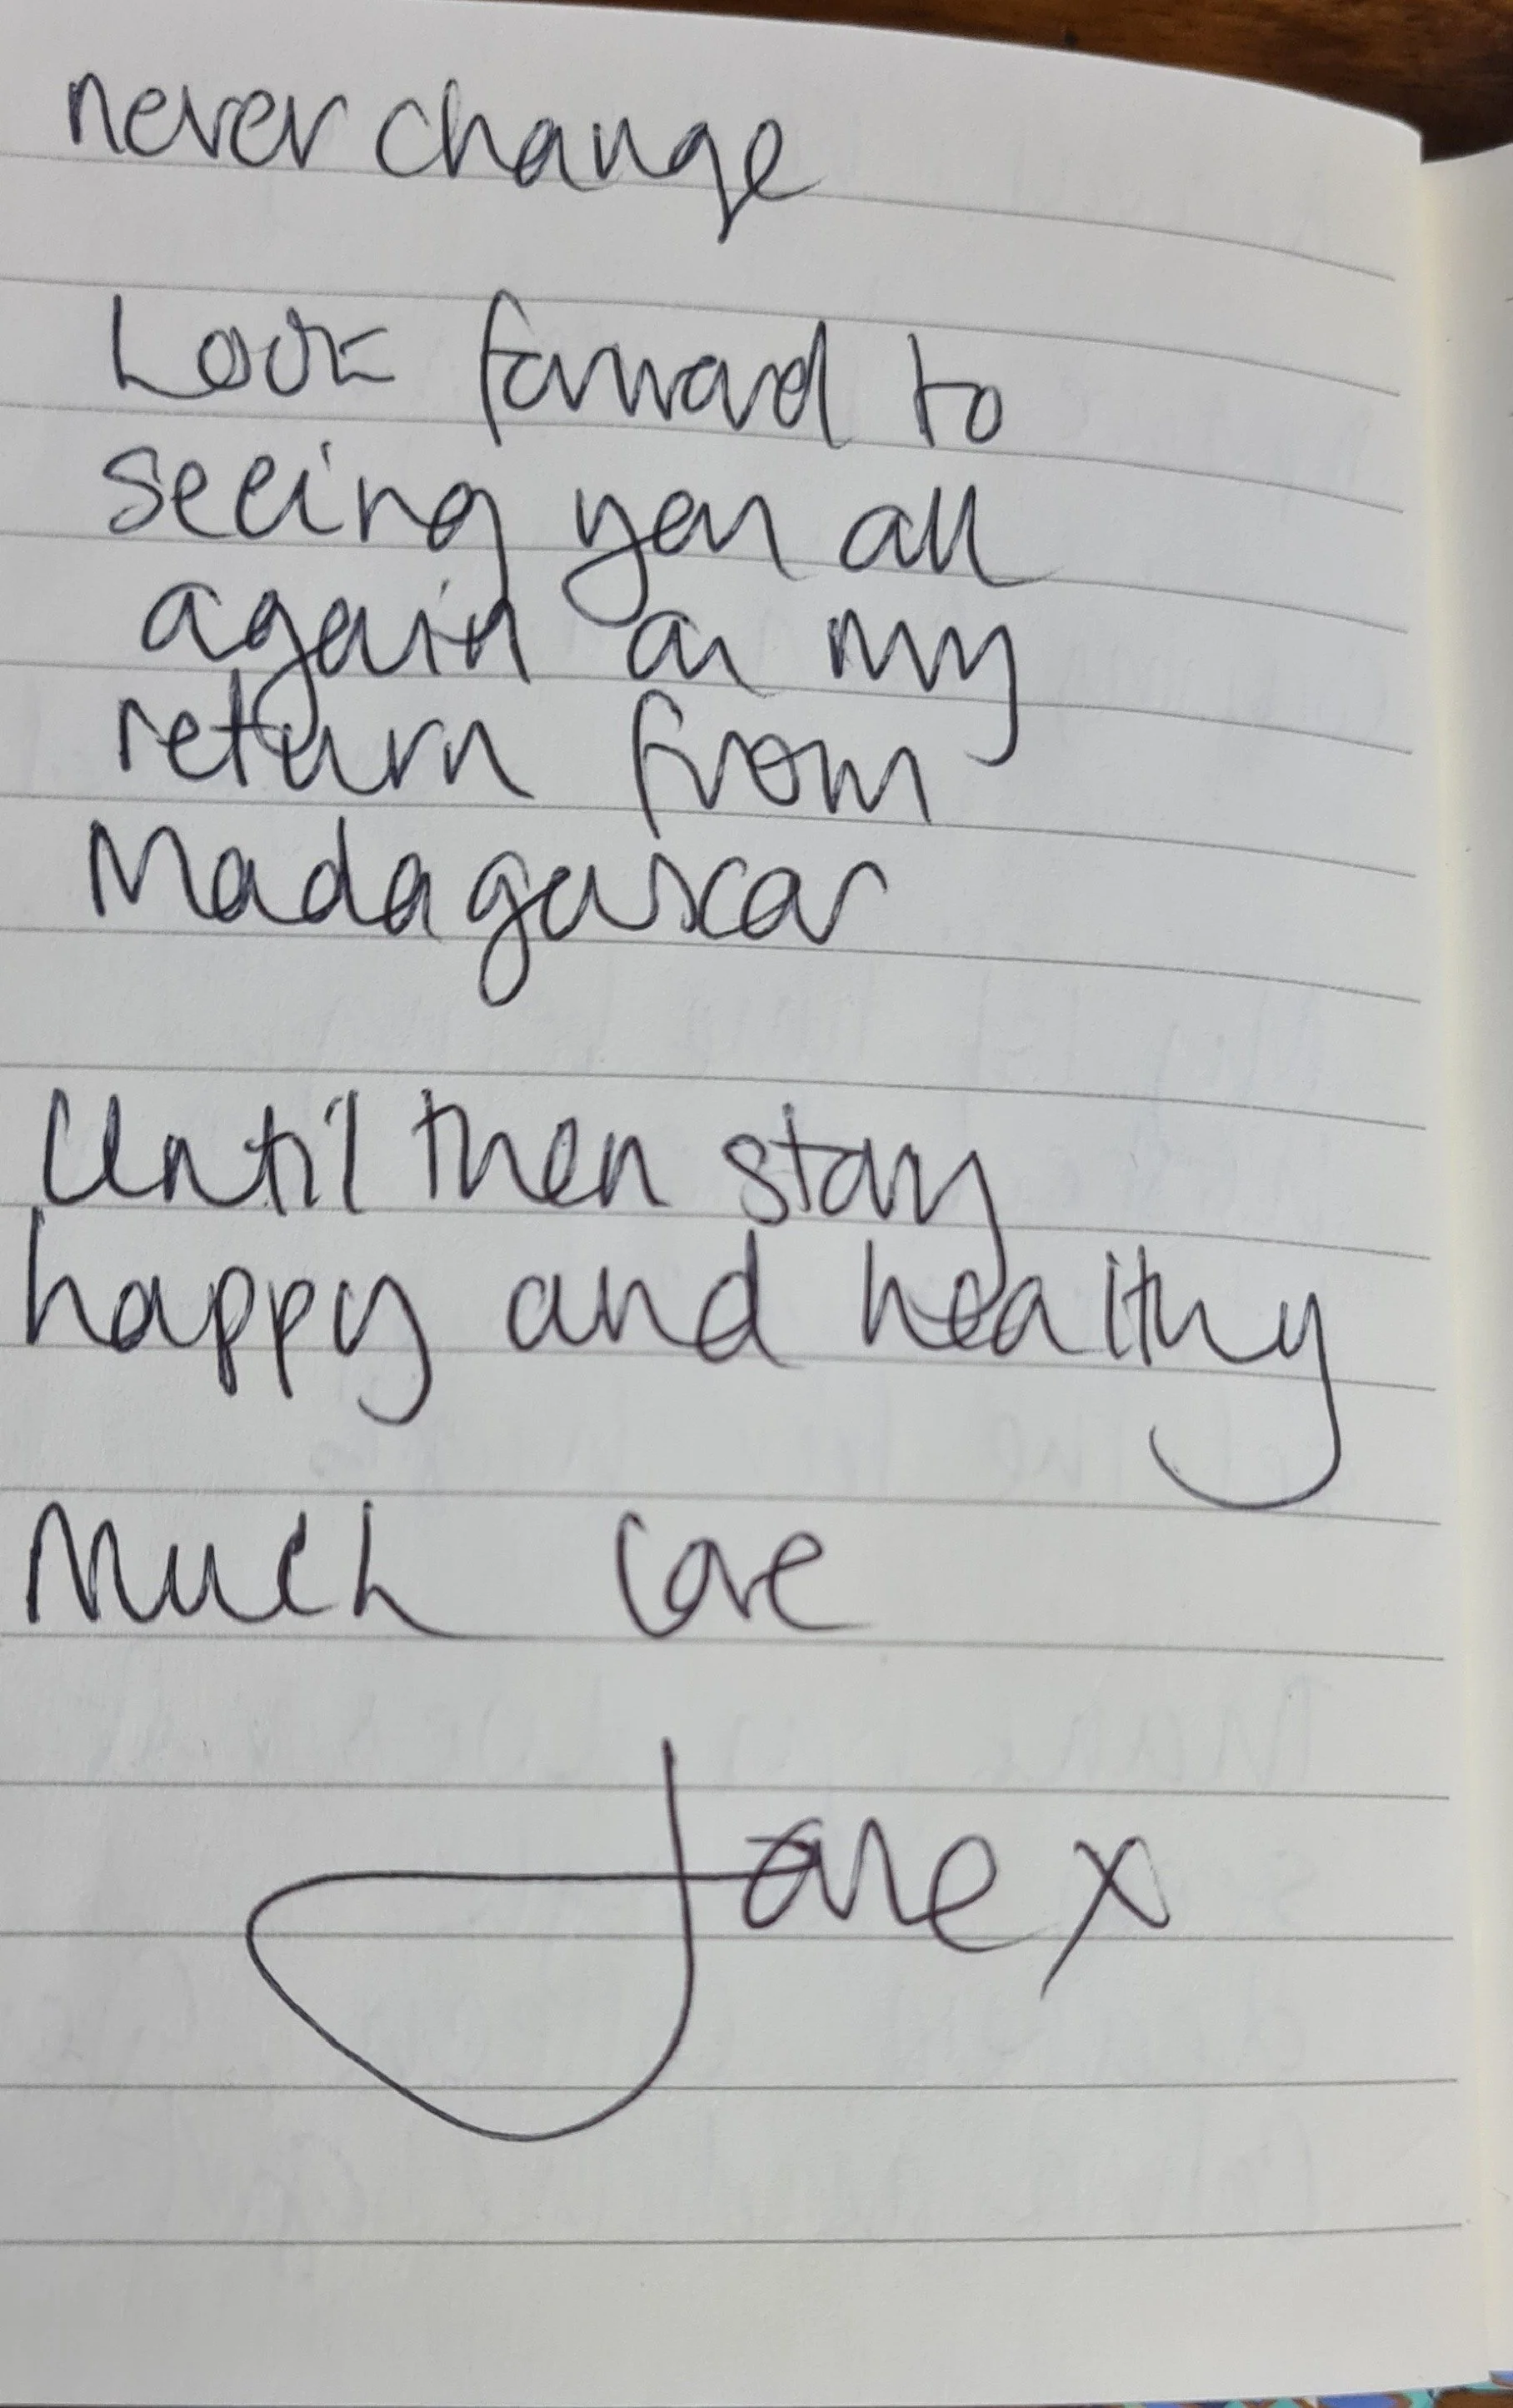 never change
Look forward to
seeing you all
again on my
return from
Madagascar
Until then stay
happy and healthy
Much love
Jane x